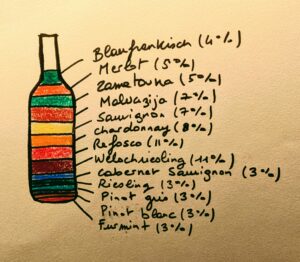 Blaufränkisch (4%)
Merlot (5%)
Žametovna (5%)
Malvazija (7%)
Sauvignon (7%)
chardonnay (8%)
Refosco (11%)
Welschriesling (11%)
cabernet Sauvignon (3%)
Riesling (3%)
Pinot gris (3%)
Pinot blanc (3%)
Furmint (3%)